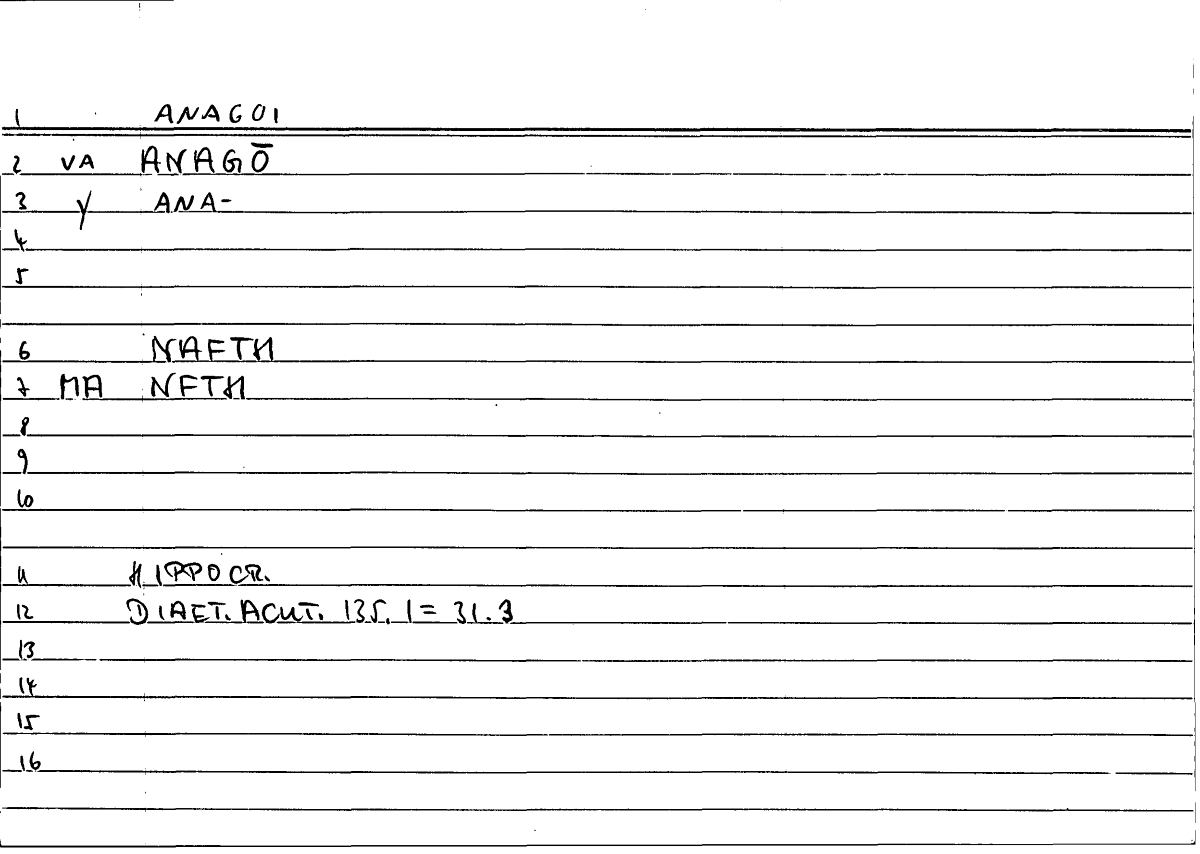 1 ANAGOI
2 VA ANAGŌ
3 Y ANA-
4
5
6 NAFTH
7 MA NFTH
8
9
10
11 HIPPOCR.
12 DIAET. ACUT. 135, 1 = 31.3
13
14
15
16